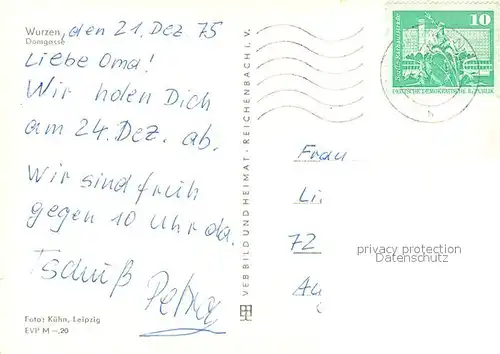 Wurzen, den 21. Dez. 75
Domgasse
Liebe Oma!
Wir holen Dich
am 24. Dez. ab.
Wir sind früh
gegen 10 Uhr da.
Tschüß
Petra
Foto: Kühn, Leipzig
EVP M –,20
VEB BILD UND HEIMAT · REICHENBACH I. V.
10
DEUTSCHE DEMOKRATISCHE REPUBLIK
Frau
Li
72
Au
privacy protection
Datenschutz